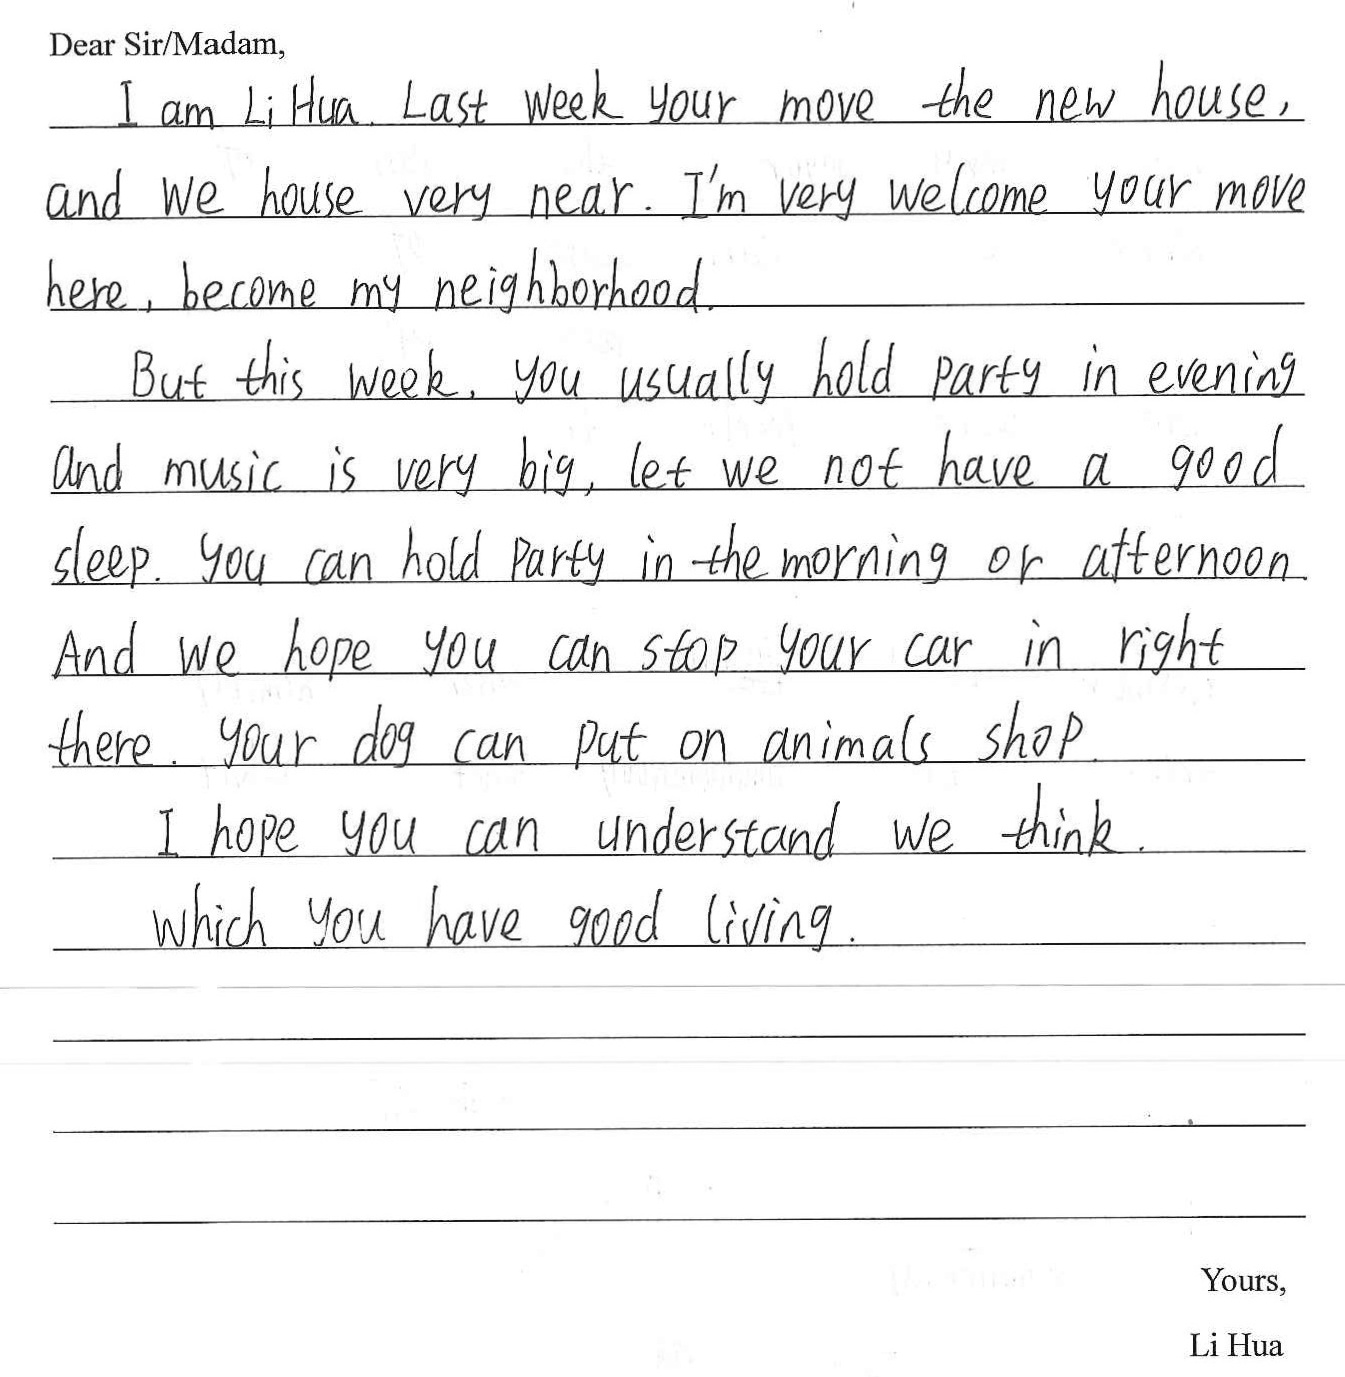 Dear Sir/Madam,
I am Li Hua. Last week your move the new house,
and we house very near. I'm very welcome your move
here, become my neighborhood.
But this week, you usually hold party in evening
and music is very big, let we not have a good
sleep. You can hold party in the morning or afternoon.
And we hope you can stop your car in right
there. Your dog can put on animals shop.
I hope you can understand we think.
Which you have good living.
Yours,
Li Hua